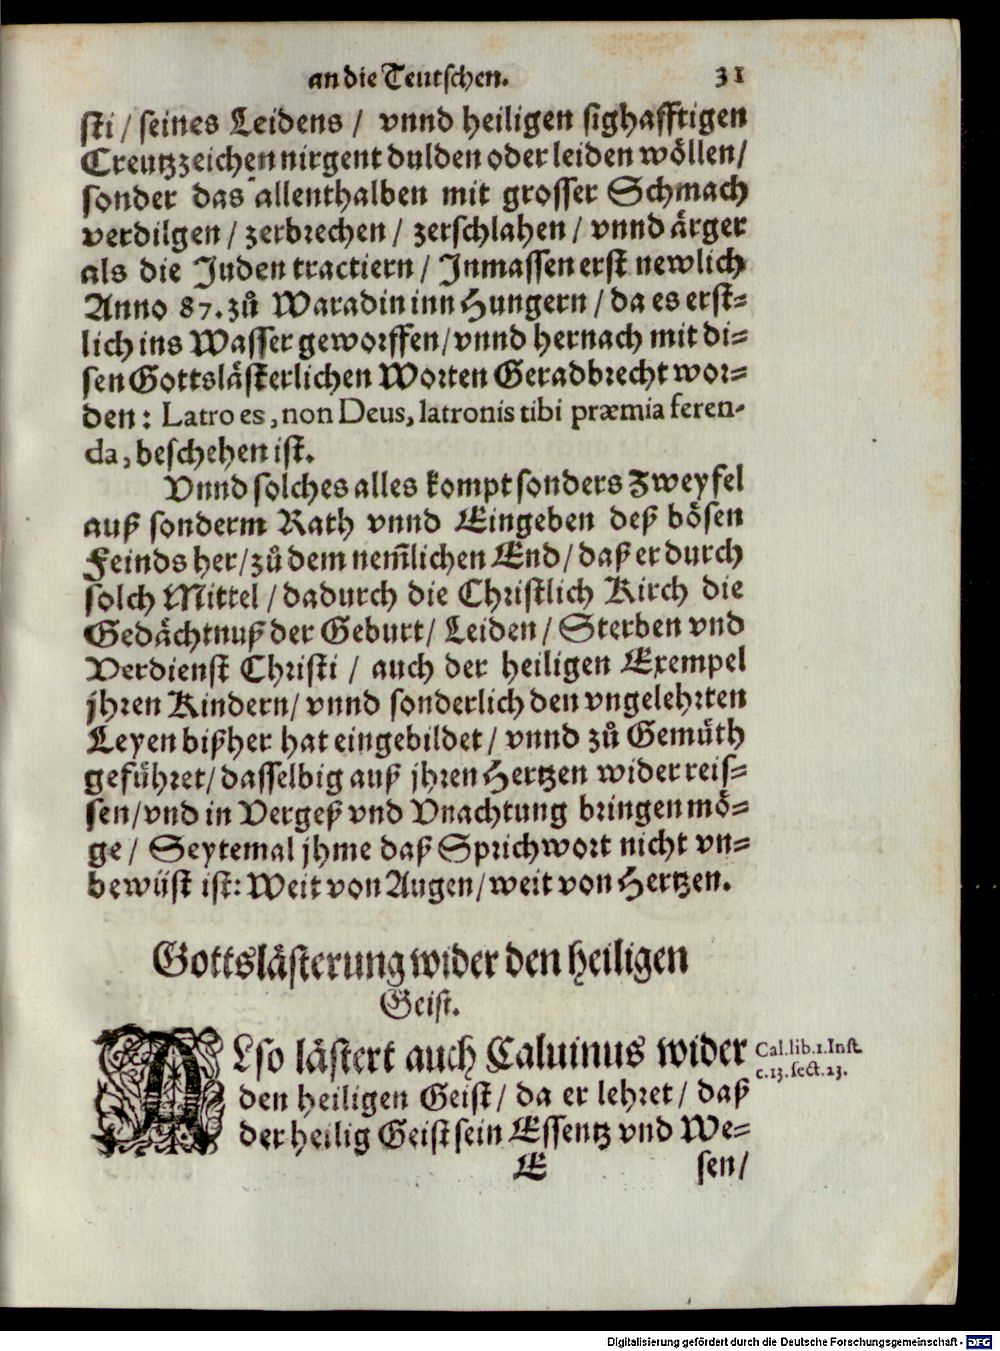 an die Teutschen. 31
sti / seines Leidens / vnnd heiligen sighafftigen
Creutzzeichen nirgent dulden oder leiden wöllen /
sonder das allenthalben mit grosser Schmach
verdilgen / zerbrechen / zerschlahen / vnnd ärger
als die Juden tractiern / Jnmassen erst newlich
Anno 87. zů Waradin inn Hungern / da es erst-
lich ins Wasser geworffen / vnnd hernach mit di-
sen Gottslästerlichen Worten Geradbrecht wor-
den: Latro es, non Deus, latronis tibi præmia feren-
da, beschehen ist.
Vnnd solches alles kompt sonders Zweyfel
auß sonderm Rath vnnd Eingeben deß bösen
Feinds her / zů dem nem̃lichen End / daß er durch
solch Mittel / dadurch die Christlich Kirch die
Gedächtnuß der Geburt / Leiden / Sterben vnd
Verdienst Christi / auch der heiligen Exempel
jhren Kindern / vnnd sonderlich den vngelehrten
Leyen bißher hat eingebildet / vnnd zů Gemüth
geführet / dasselbig auß jhren Hertzen wider reis-
sen / vnd in Vergeß vnd Vnachtung bringen mö-
ge / Seytemal jhme daß Sprichwort nicht vn-
bewüst ist: Weit von Augen / weit von Hertzen.
Gottslästerung wider den heiligen
Geist.
ALso lästert auch Caluinus wider
den heiligen Geist / da er lehret / daß
der heilig Geist sein Essentz vnd We-
E sen /
Cal. lib. 1. Inst.
c. 13. sect. 23.
Digitalisierung gefördert durch die Deutsche Forschungsgemeinschaft - DFG